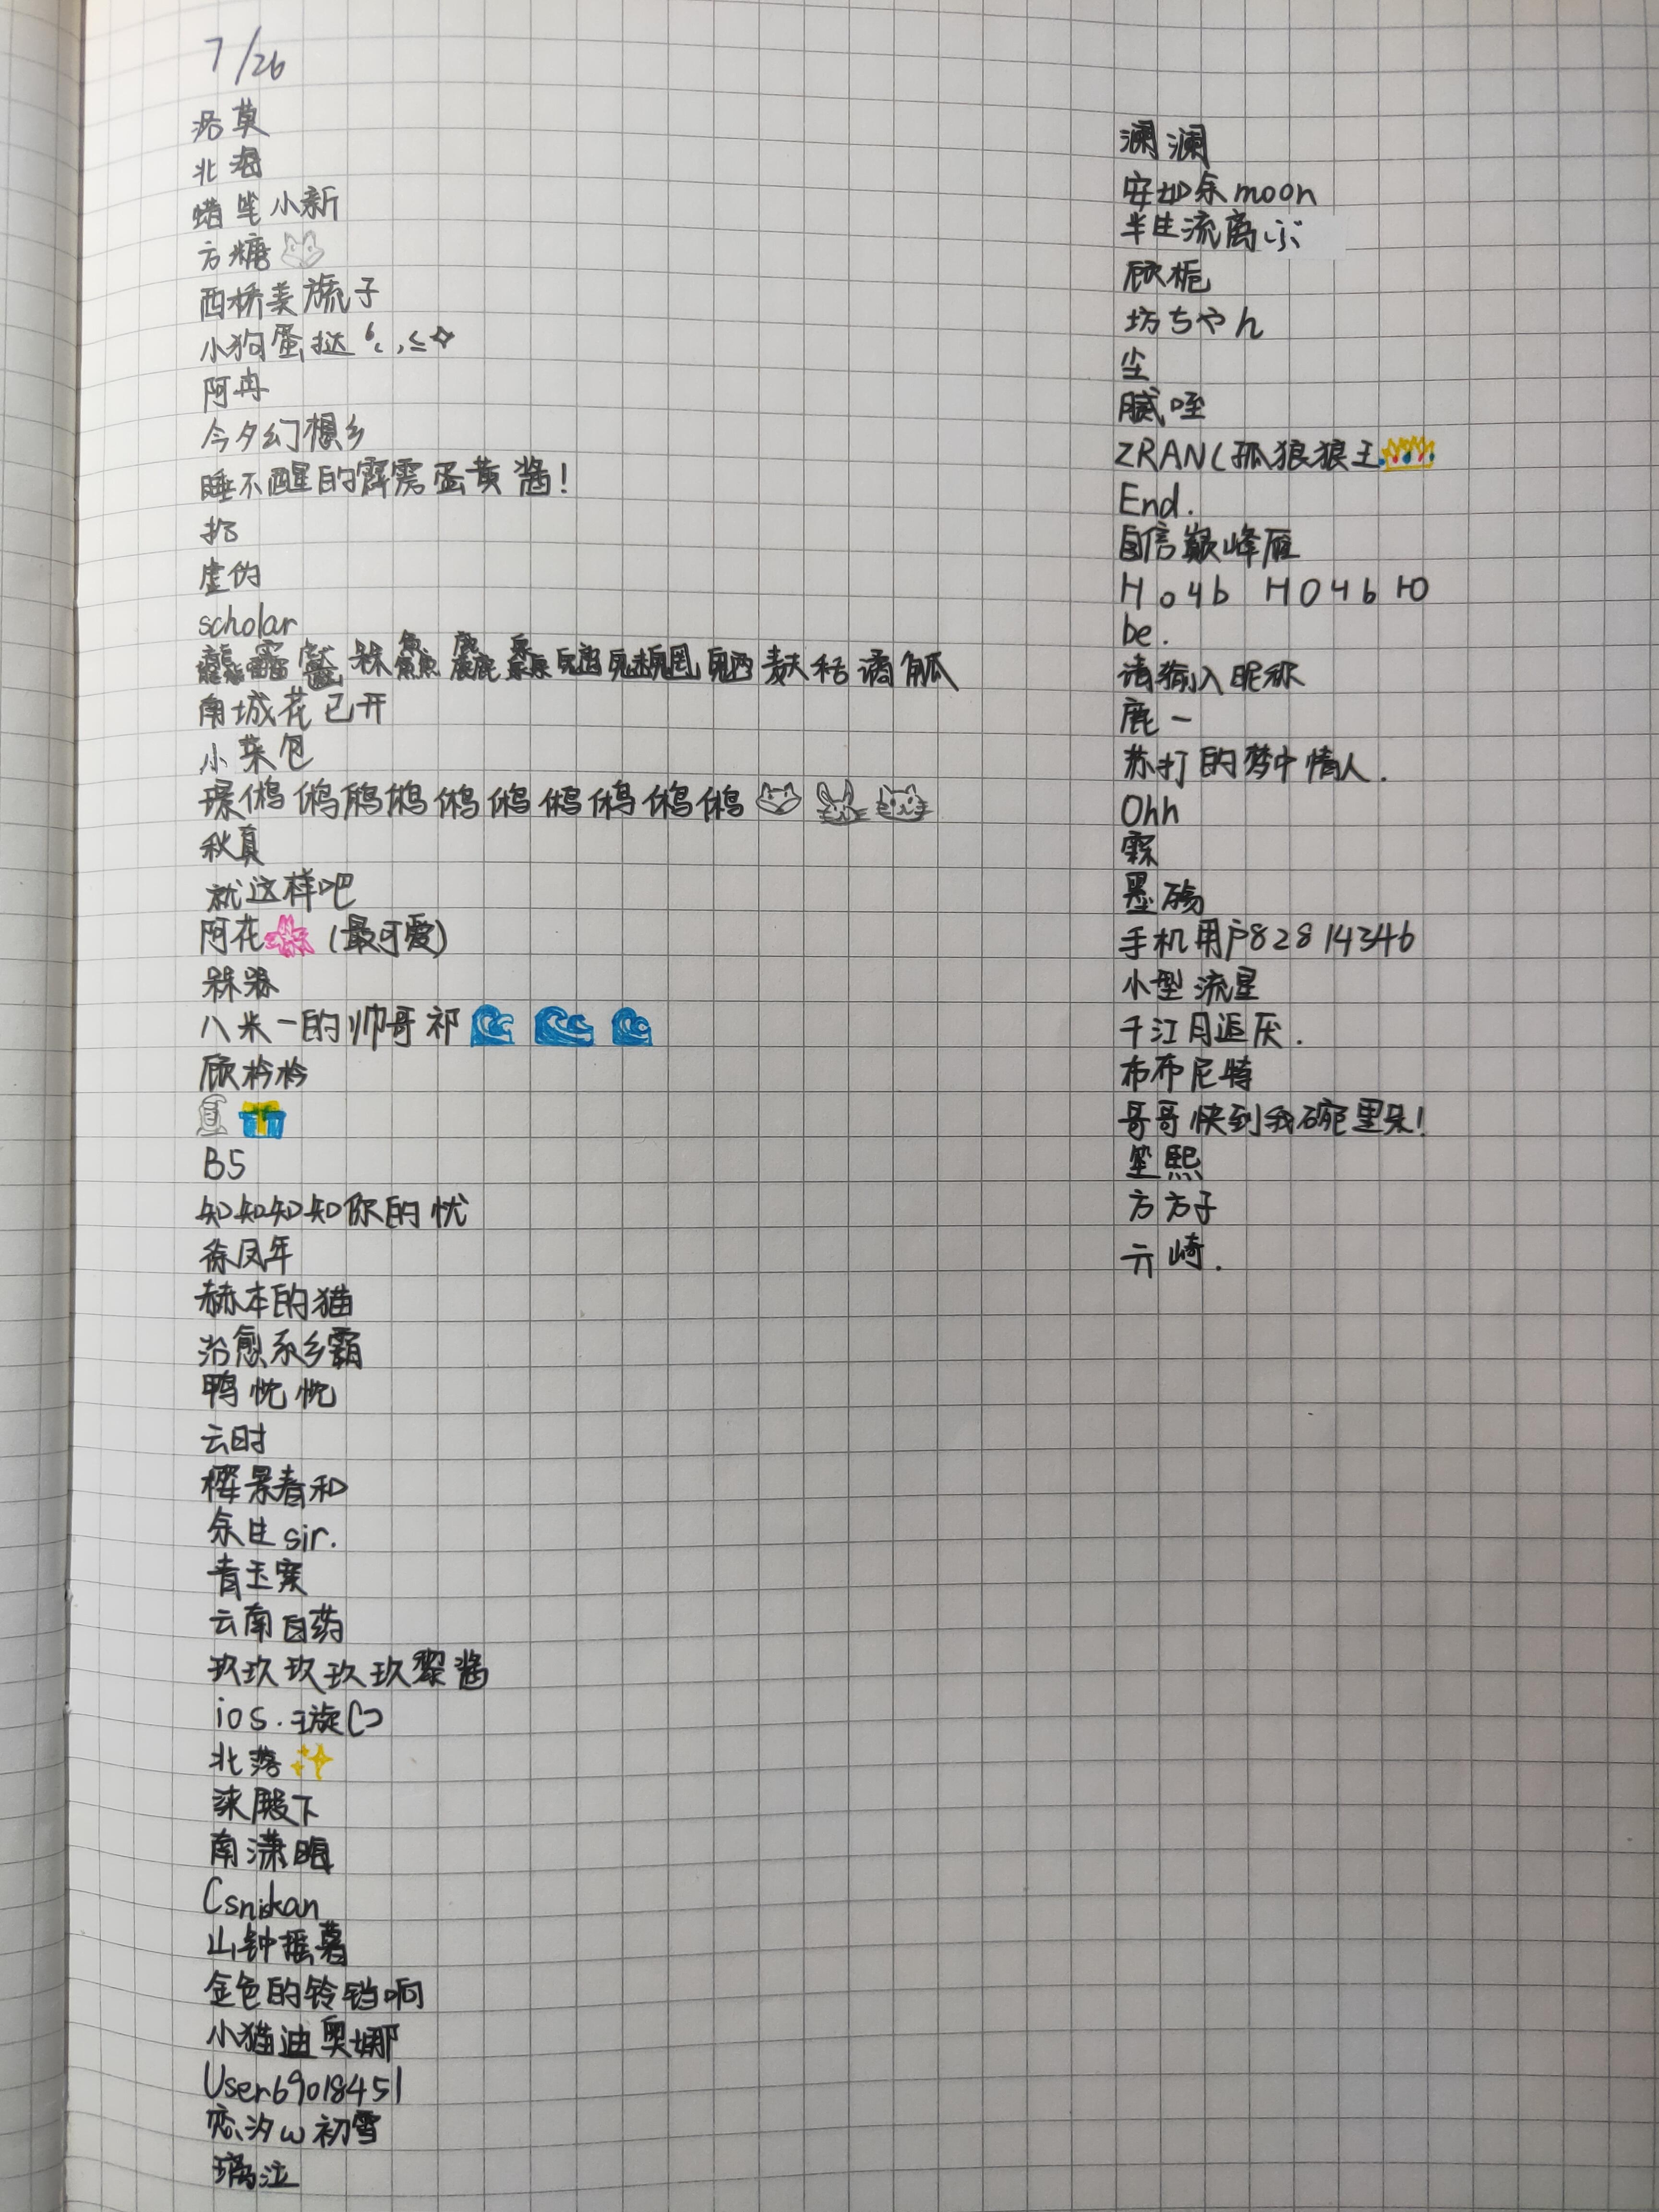 7/26
洛莫
北海
蜡笔小新
方糖
西桥美流子
小狗蛋挞
阿冉
今夕幻想乡
睡不醒的霹雳蛋黄酱!
扔
虚伪
scholar
槑
南城花已开
小菜包
秋真
就这样吧
阿花(最可爱)
槑槑
八米一的帅哥祁
顾衿衿
B5
知知知知你的忧
徐凤年
赫本的猫
治愈系乡霸
鸭忱忱
云时
樱景春和
余生sir.
青玉案
云南白药
玖玖玖玖玖黎酱
ios.璇
北落
涞殿下
南潇晚
Csniskan
山钟摇暮
金色的铃铛响
小猫迪奥娜
User69018451
恋汐w初雪
璃泣
澜澜
安如余moon
半生流离ぶ
顾栀
坊ちやん
尘
腻咥
ZRAN(孤狼狼王
End.
自信巅峰雁
Ho4b HO4b HO
be.
请输入昵称
鹿一
苏打的梦中情人.
Ohh
霖
墨殇
手机用户82814346
小型流星
千江月追厌.
布布尼特
哥哥快到我碗里来!
笙熙
方方子
亓崎.